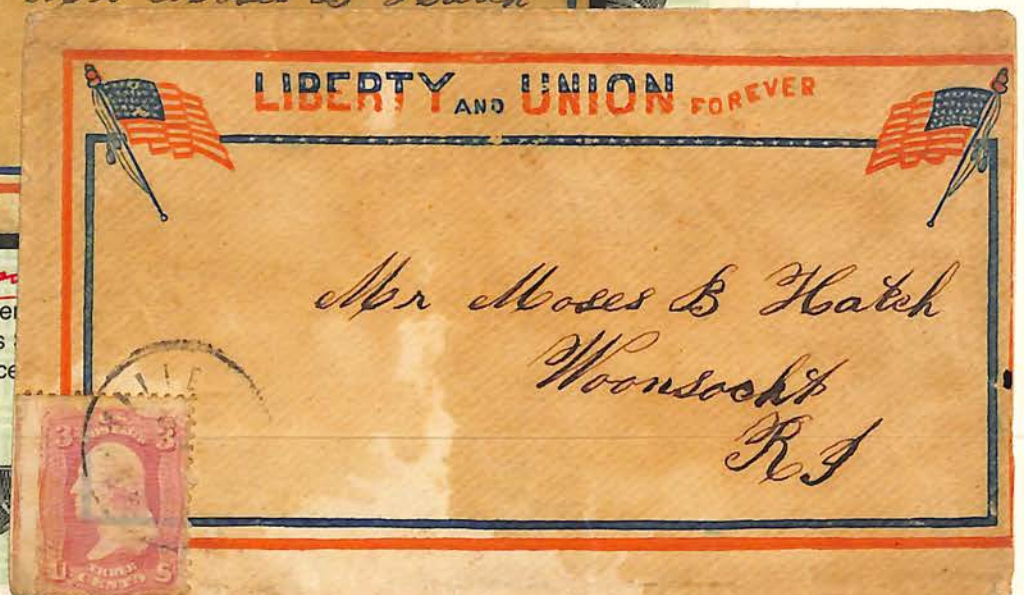 LIBERTY AND UNION FOREVER
Mr Moses B Hatch
Woonsocket
R I
3 3
U THREE CENTS S